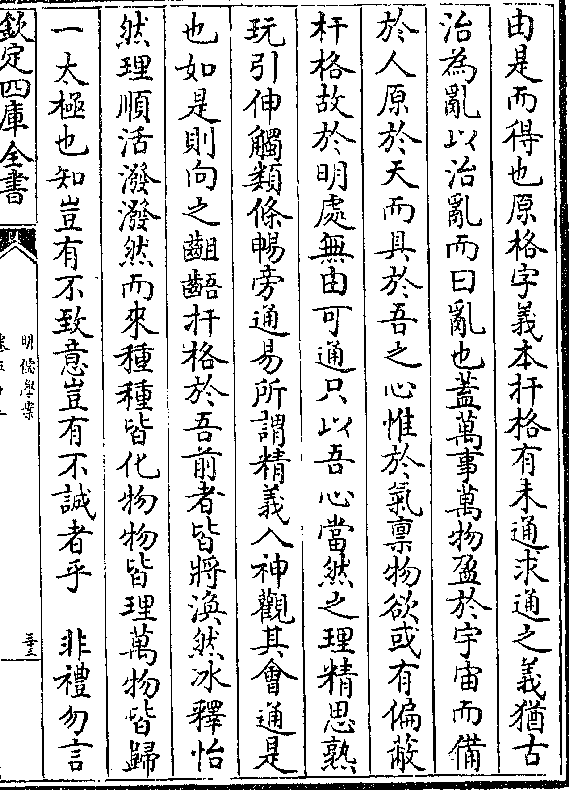 由是而得也原格字義本扞格有未通求通之義猶古
治為亂以治亂而曰亂也蓋萬事萬物盈於宇宙而備
於人原於天而具於吾之心惟於氣禀物欲或有偏蔽
杆格故於明處無由可通只以吾心當然之理精思熟
玩引伸觸類條暢旁通易所謂精義入神觀其會通是
也如是則向之齟齬扞格於吾前者皆將渙然冰釋怡
然理順活潑潑然而來種種皆化物物皆理萬物皆歸
一太極也知豈有不致意豈有不誠者乎　非禮勿言
欽定四庫全書
明儒學案